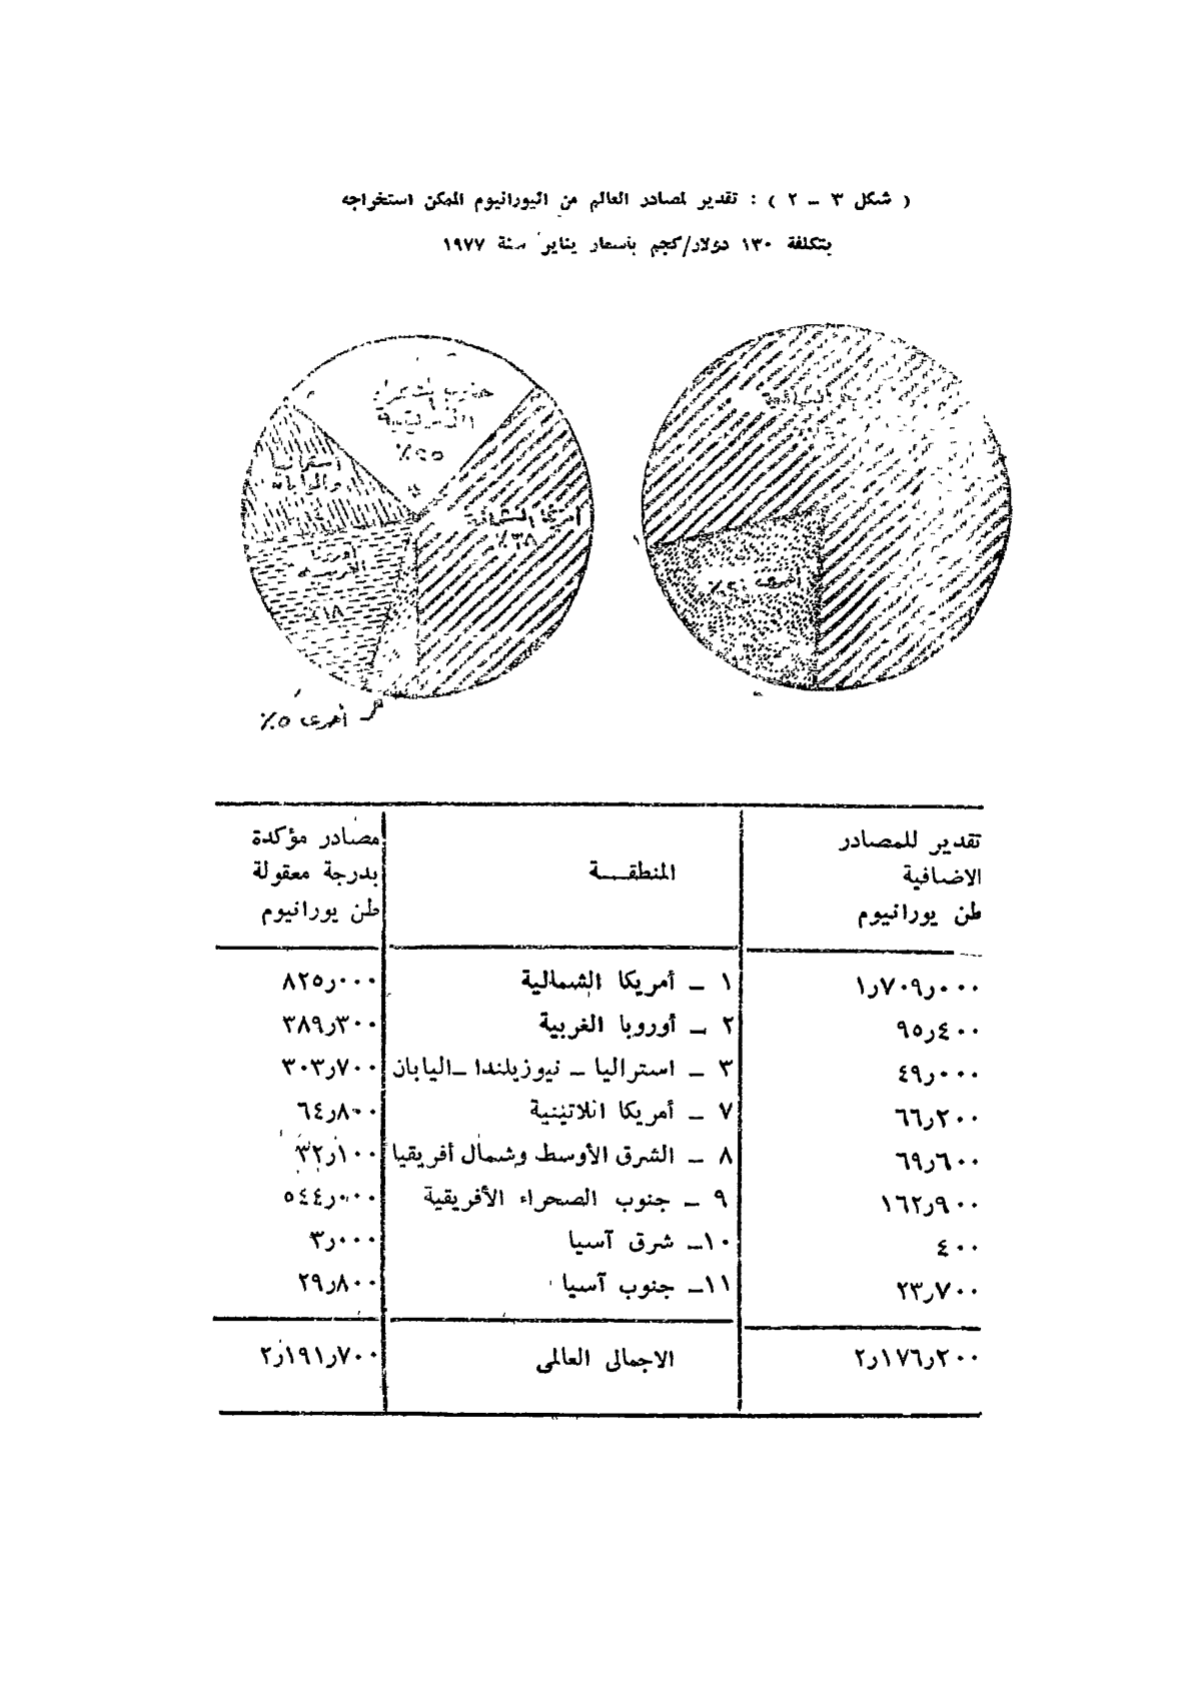 ( شكل ٣ – ٢ ) : تقدير لمصادر العالم من اليورانيوم الممكن استخراجه
بتكلفة ١٣٠ دولار/كجم بأسعار يناير سنة ١٩٧٧
جنوب
٢٥٪
استراليا
واليابان
أوروبا
الغربية
١٨٪
أمريكا الشمالية
٣٨٪
أخرى ٥٪
الشمالية
أخرى ٢١٪
تقدير للمصادر الاضافية طن يورانيوم
المنطقـــة
مصادر مؤكدة بدرجة معقولة طن يورانيوم
١٫٧٠٩٫٠٠٠ ١ – أمريكا الشمالية ٨٢٥٫٠٠٠
٩٥٫٤٠٠ ٢ – أوروبا الغربية ٣٨٩٫٣٠٠
٤٩٫٠٠٠ ٣ – استراليا – نيوزيلندا –اليابان ٣٠٣٫٧٠٠
٦٦٫٢٠٠ ٧ – أمريكا اللاتينية ٦٤٫٨٠٠
٦٩٫٦٠٠ ٨ – الشرق الأوسط وشمال أفريقيا ٣٢٫١٠٠
١٦٢٫٩٠٠ ٩ – جنوب الصحراء الأفريقية ٥٤٤٫٠٠٠
٤٠٠ ١٠– شرق آسيا ٣٫٠٠٠
٢٣٫٧٠٠ ١١– جنوب آسيا ٢٩٫٨٠٠
٢٫١٧٦٫٢٠٠ الاجمالى العالمى ٢٫١٩١٫٧٠٠